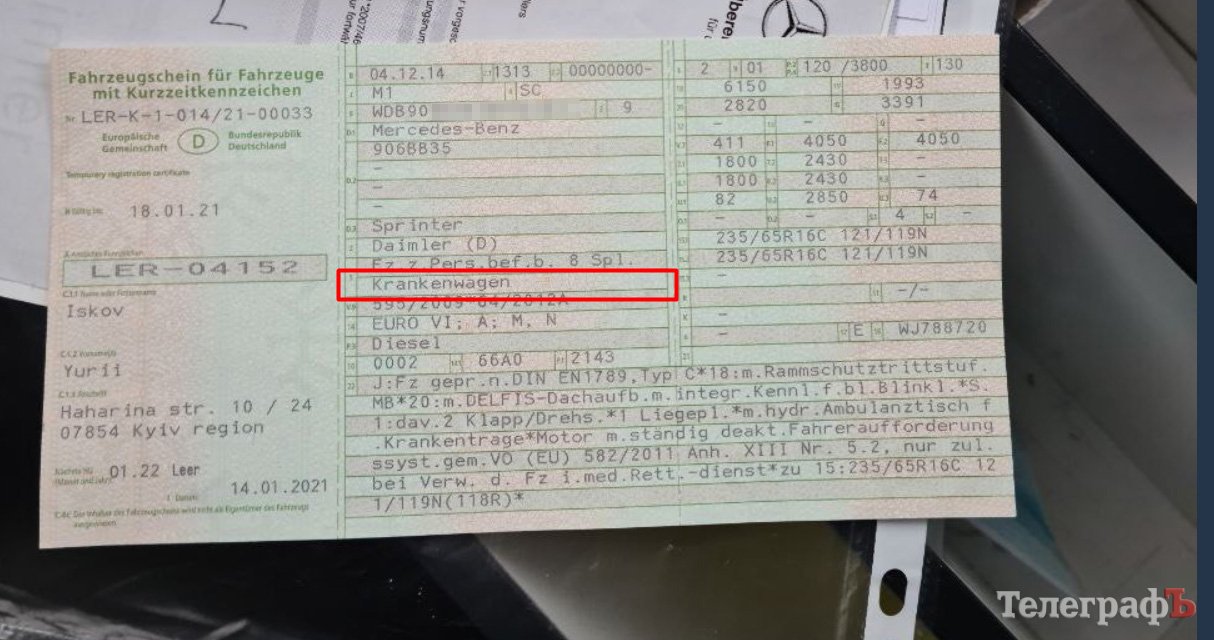 *2007/46
Fahrzeugschein für Fahrzeuge
mit Kurzzeitkennzeichen
Nr LER-K-1-014/21-00033
Europäische Gemeinschaft D Bundesrepublik Deutschland
Temporary registration certificate
18.01.21
LER-04152
C.1.1 Name oder Firmenname
Iskov
C.1.2 Vorname(n)
Yurii
C.1.3 Anschrift
Haharina str. 10 / 24
07854 Kyiv region
01.22 Leer
14.01.2021
B 04.12.14 1313 00000000-
M1 SC
WDB90 9
Mercedes-Benz
906BB35
–
–
–
Sprinter
Daimler (D)
Fz.z.Pers.bef.b. 8 Spl.
Krankenwagen
595/2009*64/2012A
EURO VI; A; M, N
Diesel
0002 66A0 2143
2 01 120 /3800 130
6150 1993
2820 3391
– – –
411 4050 4050
1800 2430 –
1800 2430 –
82 2850 74
– – 4 –
235/65R16C 121/119N
235/65R16C 121/119N
–
– -/-
–
– E WJ788720
J:Fz gepr.n.DIN EN1789,Typ C*18:m.Rammschutztrittstuf.
MB*20:m.DELFIS-Dachaufb.m.integr.Kennl.f.bl.Blinkl.*S.
1:dav.2 Klapp/Drehs.*1 Liegepl.*m.hydr.Ambulanztisch f
.Krankentrage*Motor m.ständig deakt.Fahreraufforderung
ssyst.gem.VO (EU) 582/2011 Anh. XIII Nr. 5.2, nur zul.
bei Verw. d. Fz i.med.Rett.-dienst*zu 15:235/65R16C 12
1/119N(118R)*
ТелеграфЪ